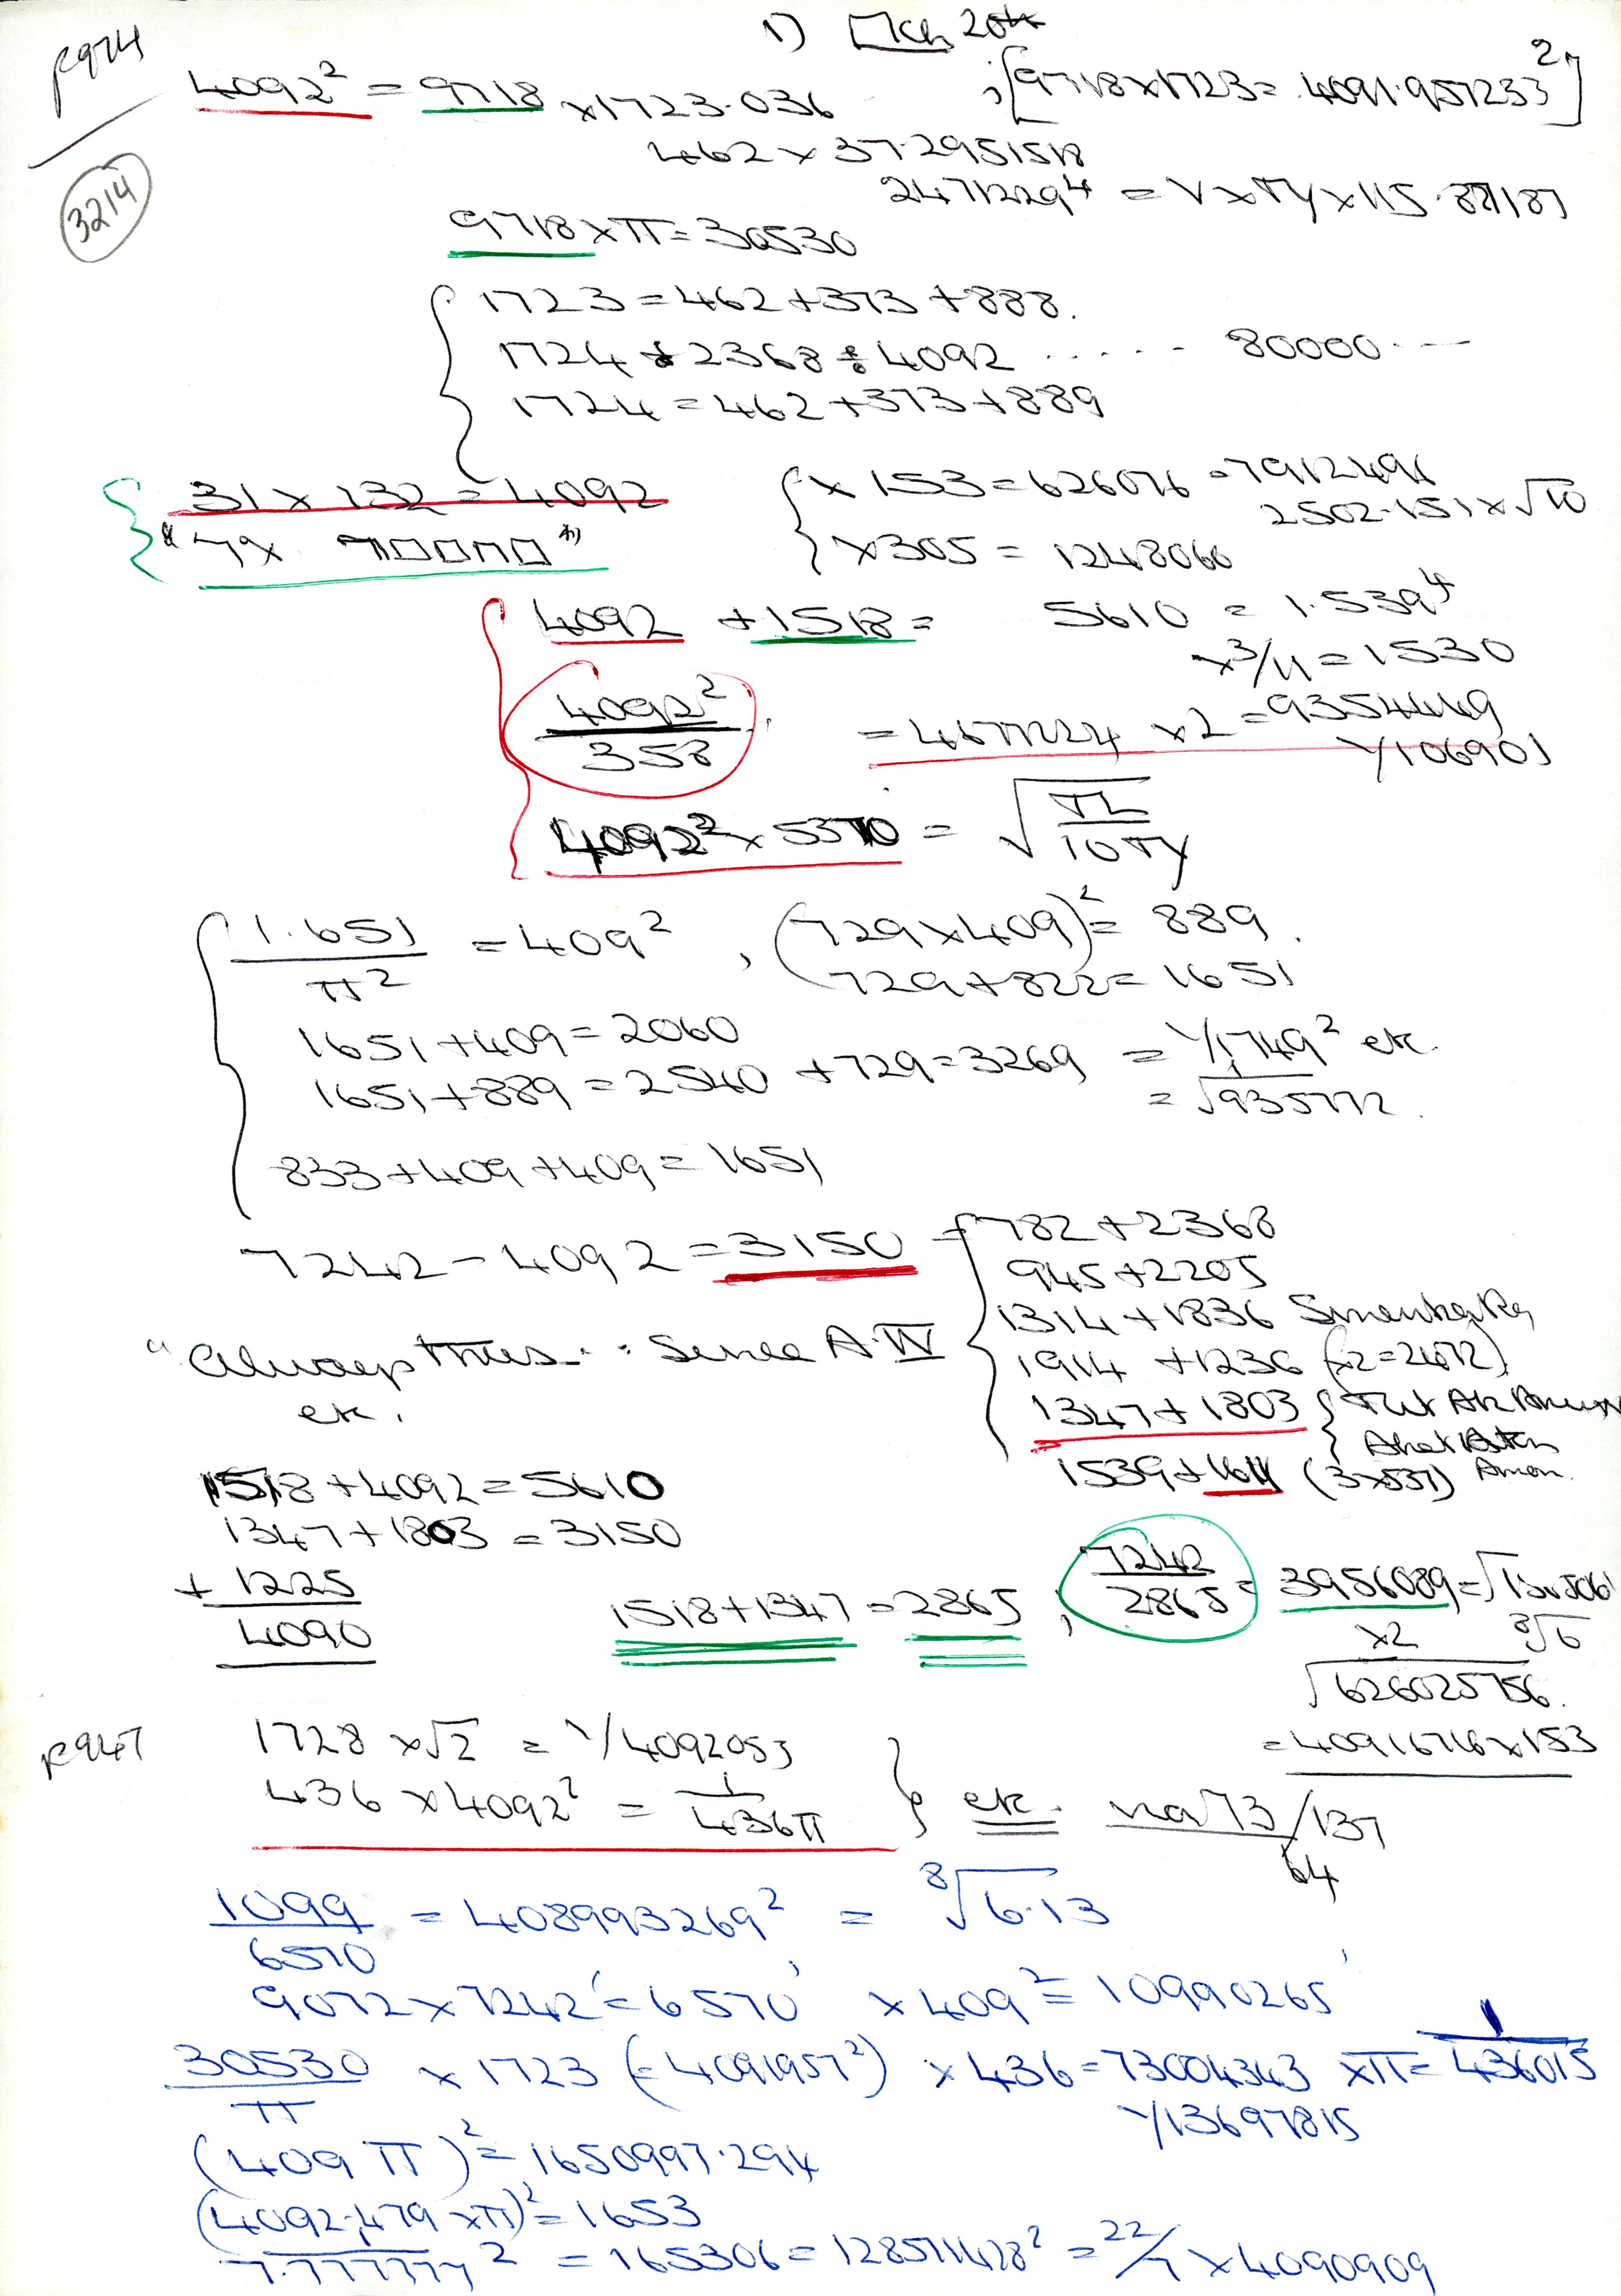 1) Mch 20th
p974
3214
4092² = 9718 × 1723.036 ; [9718×1723 = 4091.957233²]
462 × 37.2951518
2471229⁴ = V × TY × 115.871187
9718 × π = 30530
1723 = 462 + 373 + 888.
1724 + 2368 = 4092 ..... 80000 ...
1724 = 462 + 373 + 889
31 × 132 = 4092
× 153 = 626076 = 7912491
2502.151 × √10
× 305 = 1248060
4092 + 1518 = 5610 = 1.539⁴
× 3/11 = 1530
4092² / 358 = 4677224 × 2 = 9354449
1/106901
4092² × 5370 = √(π / 10 TY)
1.651 / π² = 409² , (729×409)² = 889.
729 + 822 = 1651
1651 + 409 = 2060
1651 + 889 = 2540 + 729 = 3269 = 1/1749² etc.
= √935772.
833 + 409 + 409 = 1651
7242 − 4092 = 3150 = { 782 + 2368
945 + 2205
1314 + 1836 Smenkaka
1914 + 1236 (×2=2472)
"Always thus... Since A.IV
etc.
1347 + 1803 } Tut Ak Amun
Akhet Aten
1539 + 1611 (3×537) Amen.
1518 + 4092 = 5610
1347 + 1803 = 3150
+ 1225
4090
1518 + 1347 = 2865 ; 7242 / 2865 = 3956089 =
×2
⁸√6
√626025756.
= 40916716 × 153
p947
1728 × √2 = 1/4092053
436 × 4092² = 1 / 436π } etc. no 73/137
64
1099 / 6570 = 408993269² = ⁸√6.13
9072 × 7242 = '6570' × 409² = 10990265'
30530 / π × 1723 (= 4091957²) × 436 = 73004343 × π = 1 / 436015
1/13697815
(409 π)² = 1650997.294
(4092.479 × π)² = 1653
1 / 7.777777² = 165306 = 128571428² = 22/7 × 4090909